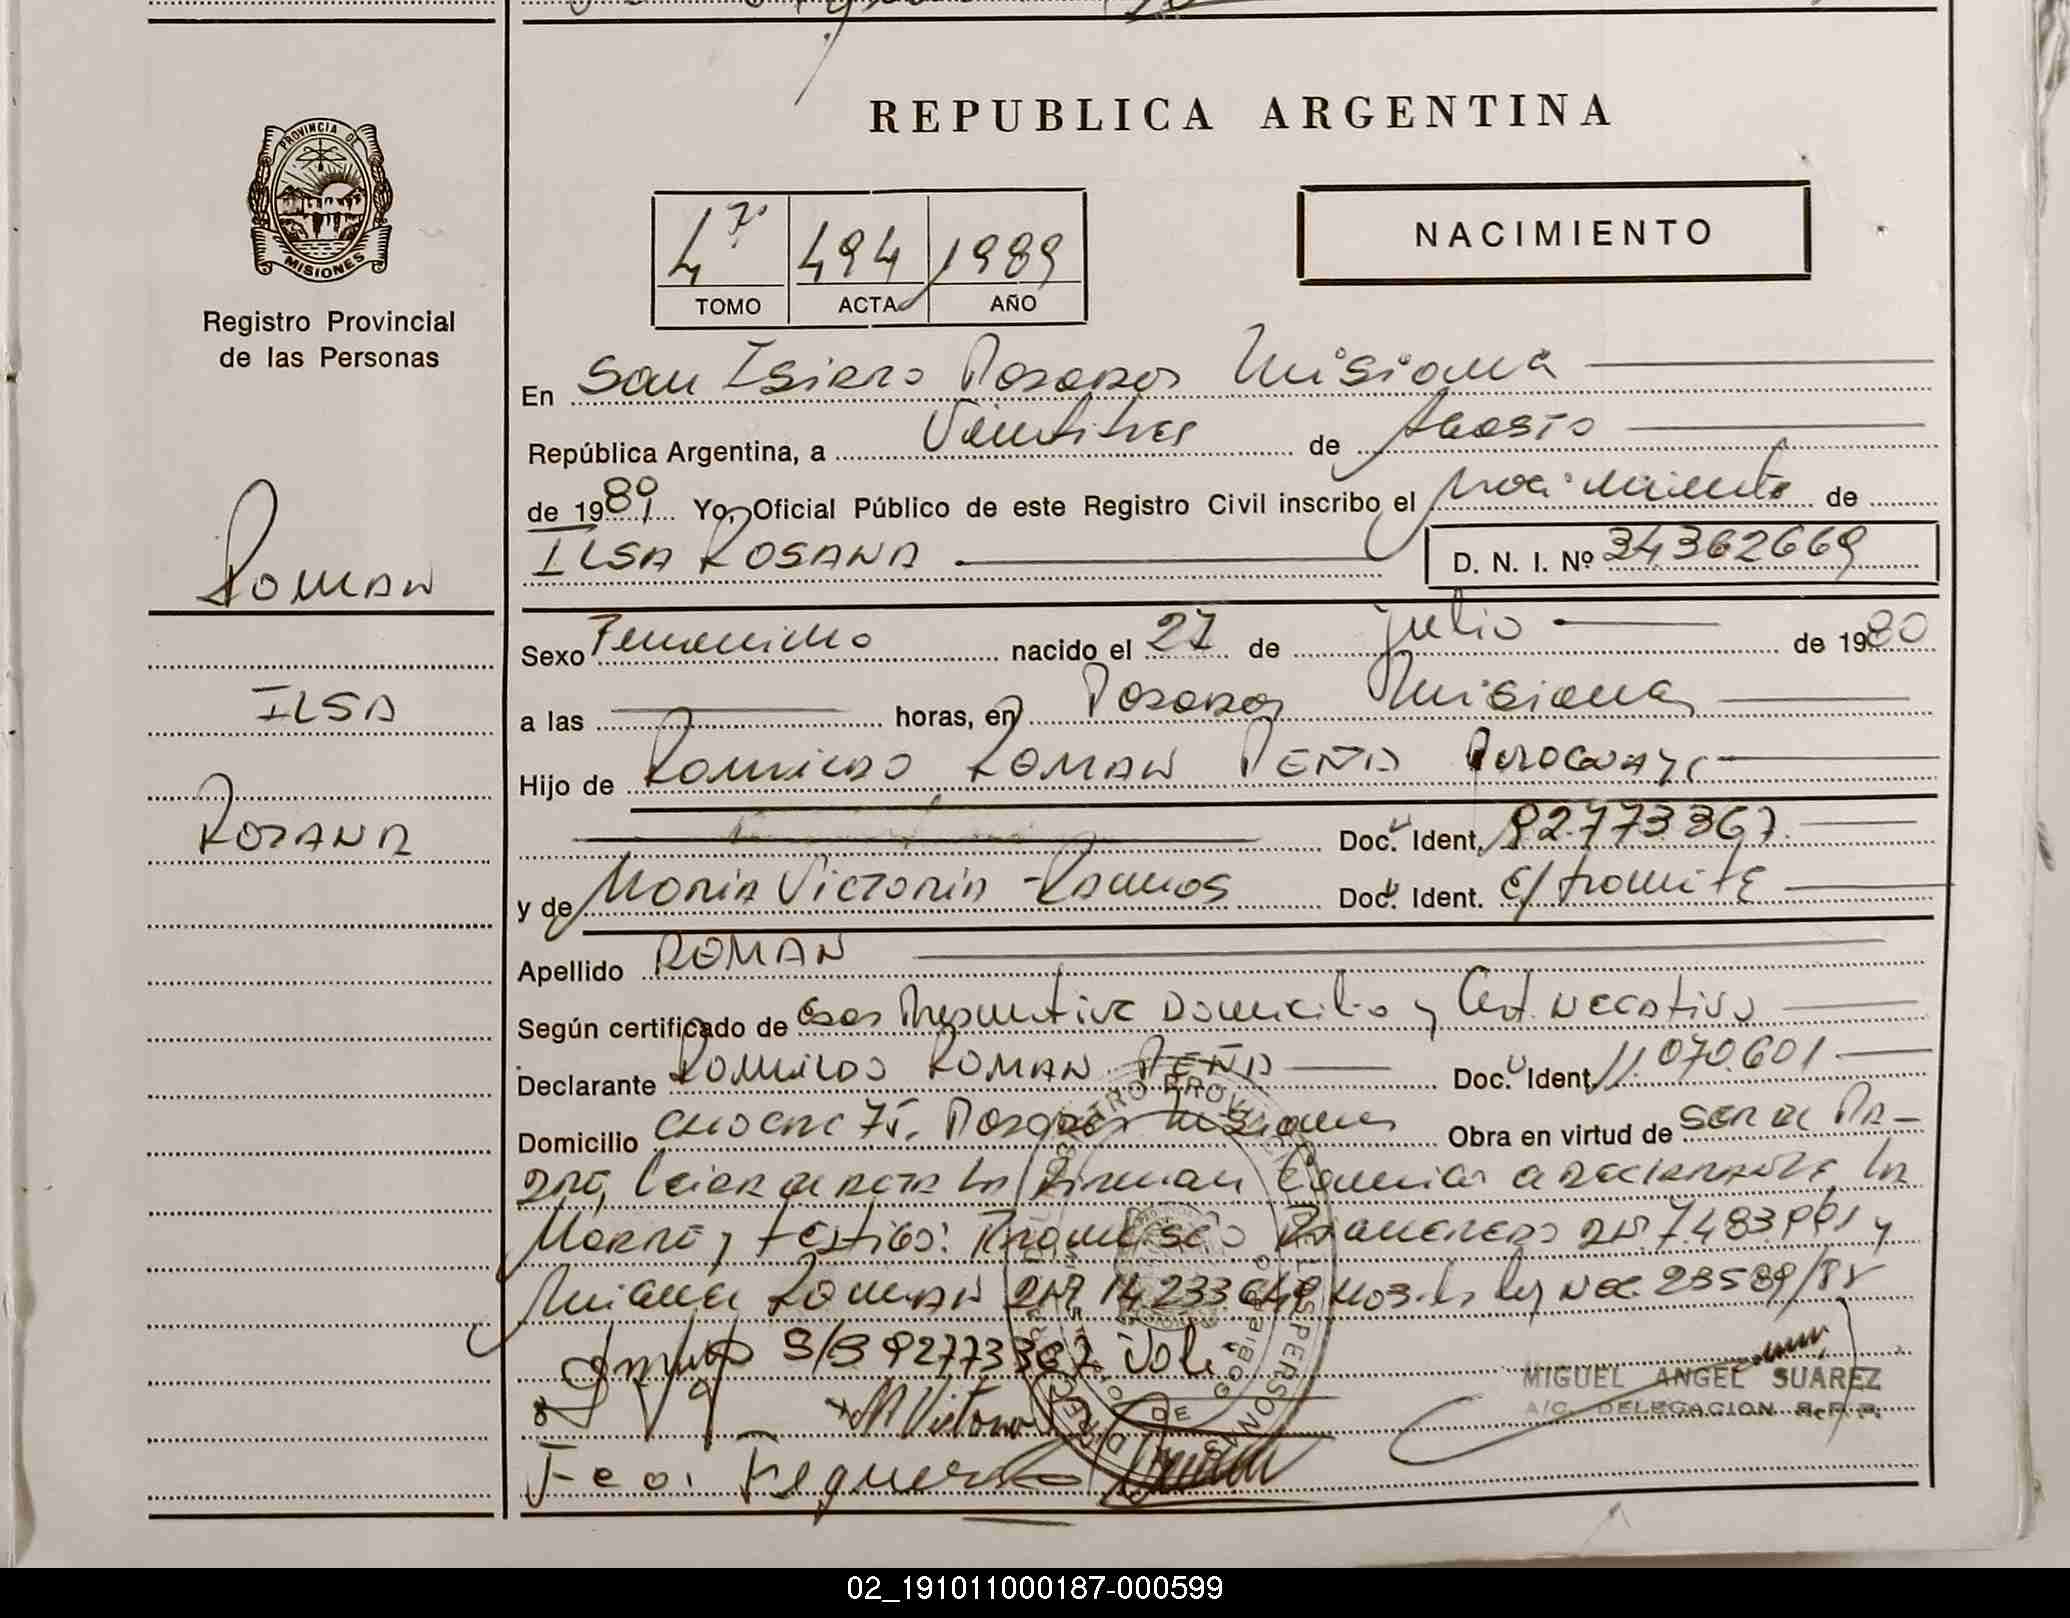 REPUBLICA ARGENTINA
PROVINCIA DE
MISIONES
Registro Provincial
de las Personas
4º 494 1989
TOMO ACTA AÑO
NACIMIENTO
En San Isidro Posadas Misiones
República Argentina, a Veintitres de Agosto
de 1989 Yo, Oficial Público de este Registro Civil inscribo el nacimiento de
ILSA ROSANA D. N. I. Nº 34362669
ROMAN
ILSA
ROSANA
Sexo Femenino nacido el 27 de julio de 1980
a las horas, en Posadas Misiones
Hijo de Romildo ROMAN PEÑA Paraguayo
Doc. Ident. 92.773.367.
y de Maria Victoria Ramos Doc. Ident. E/tramite
Apellido ROMAN
Según certificado de edad Presuntiva Domicilio y Cert. Negativo
Declarante Romildo ROMAN PEÑA Doc. Ident. 11.070.601
Domicilio 75, Posadas Misiones Obra en virtud de ser el Pa-
dre, Leida el acta la firman Conmigo el declarante, la
Madre y testigos: DNI 7.483.991 y
Roman DNI 14.233.649 ley Nac. 23539/88
S/B 92773367 Vale
M Victoria R
MIGUEL ANGEL SUAREZ
A/C. DELEGACION R.P.P.
Fco. Figueredo
02_191011000187-000599